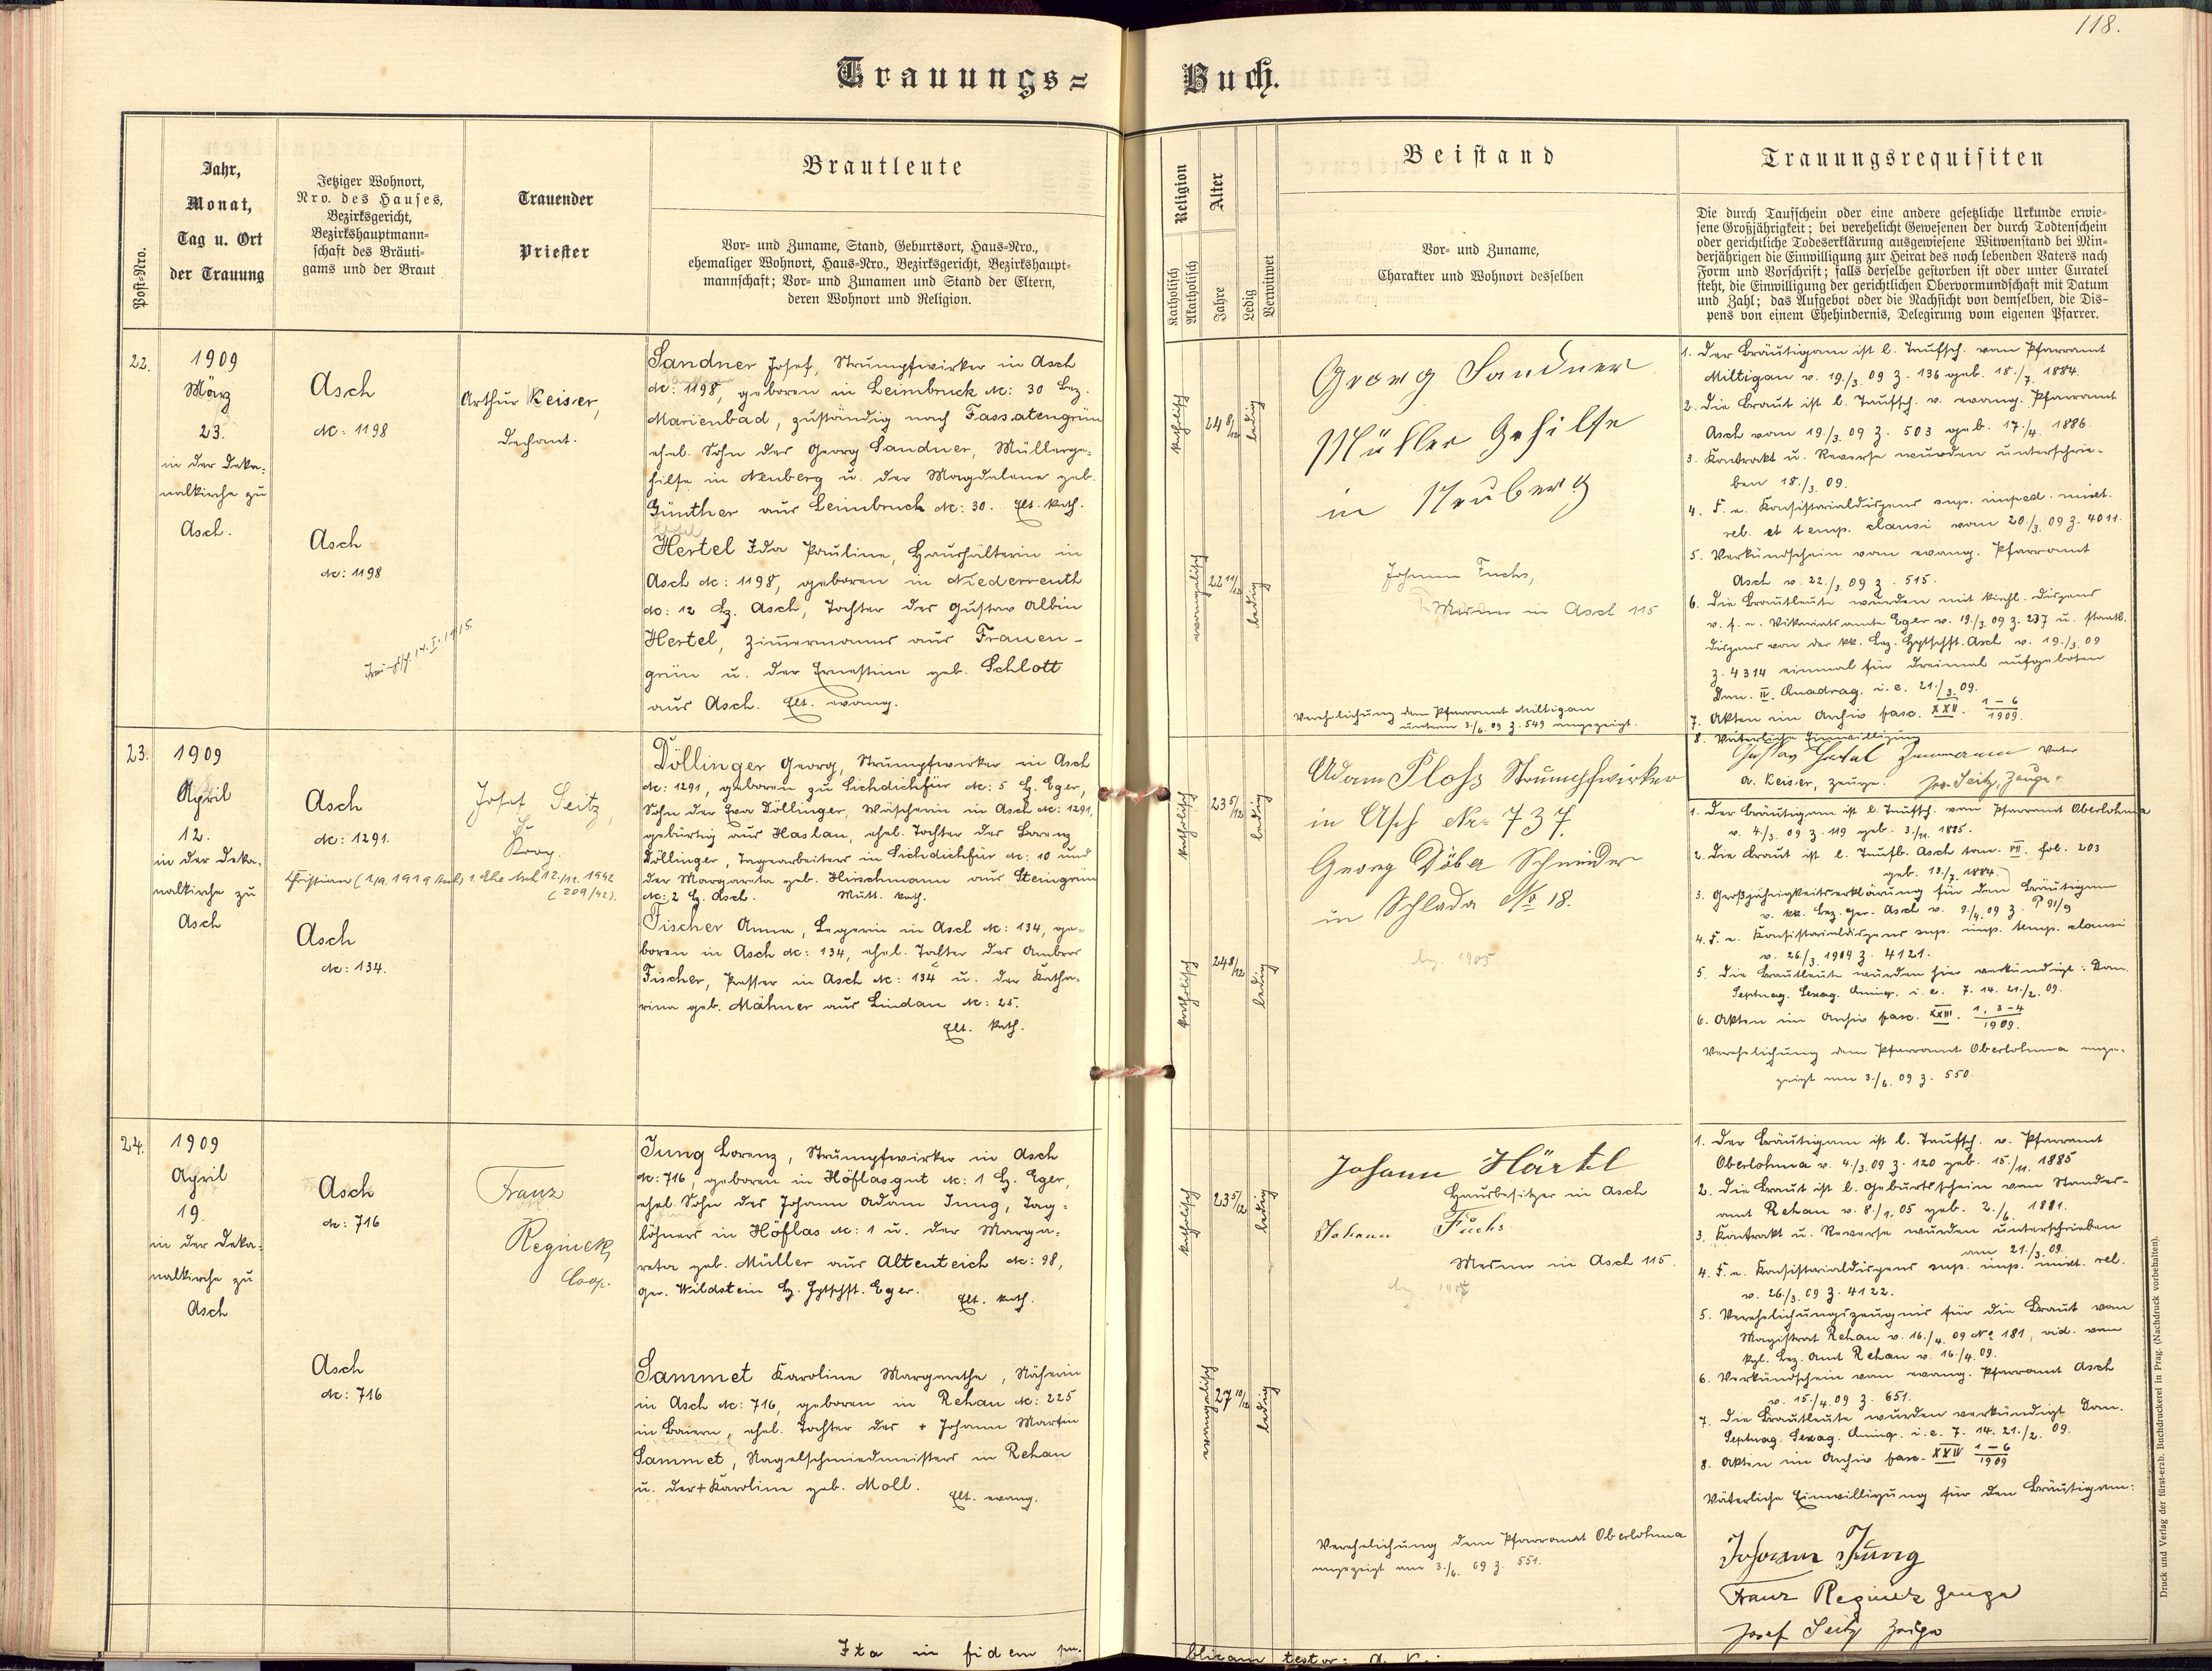 118.
Trauungs=
Buch.
Post-Nro.
Jahr,
Monat,
Tag u. Ort
der Trauung
Jetziger Wohnort,
Nro. des Hauses,
Bezirksgericht,
Bezirkshauptmann-
schaft des Bräuti-
gams und der Braut
Trauender
Priester
Brautleute
Vor- und Zuname, Stand, Geburtsort, Haus-Nro.,
ehemaliger Wohnort, Haus-Nro., Bezirksgericht, Bezirkshaupt-
mannschaft; Vor- und Zunamen und Stand der Eltern,
deren Wohnort und Religion.
Religion
Katholisch
Akatholisch
Alter
Jahre
Ledig
Verwitwet
Beistand
Vor- und Zuname,
Charakter und Wohnort desselben
Trauungsrequisiten
Die durch Taufschein oder eine andere gesetzliche Urkunde erwie-
sene Großjährigkeit; bei verehelicht Gewesenen der durch Todtenschein
oder gerichtliche Todeserklärung ausgewiesene Witwenstand bei Min-
derjährigen die Einwilligung zur Heirat des noch lebenden Vaters nach
Form und Vorschrift; falls derselbe gestorben ist oder unter Curatel
steht, die Einwilligung der gerichtlichen Obervormundschaft mit Datum
und Zahl; das Aufgebot oder die Nachsicht von demselben, die Dis-
pens von einem Ehehindernis, Delegirung vom eigenen Pfarrer.
22.
1909
März
23.
in der Deka-
nalkirche zu
Asch.
Asch
Nc: 1198
Asch
Nc: 1198
14. I. 1915.
Arthur Keiser,
Dechant.
Sandner Josef, Strumpfwirker in Asch
Nc: 1198, geboren in Leimbruck Nc: 30 Bez.
Marienbad, zuständig nach Fassatengrün
ehel. Sohn des Georg Sandner, Müllerge-
hilfe in Neuberg u. der Magdalena geb.
Günther aus Leimbruck Nc: 30. Elt. kath.
Hertel Ida Pauline, Haushälterin in
Asch Nc: 1198, geboren in Niederreuth
Nc: 12 Bz. Asch, Tochter des Gustav Albin
Hertel, Zimmermanns aus Frauen-
grün u. der Ernestine geb. Schlott
aus Asch. Elt. evang.
katholisch
24 8/12
ledig
evangelisch
22 11/12
ledig
Georg Sandner
Müller Gehilfe
in Neuberg
Johann Fuchs,
Mesner in Asch 115
Verehelichung dem Pfarramt Miltigau
unterm 3./6. 09 Z. 549 angezeigt.
1. Der Bräutigam ist l. Taufsch. vom Pfarramt
Miltigau v. 19./3. 09 Z. 136 geb. 18./7. 1884.
2. Die Braut ist l. Taufsch. v. evang. Pfarramt
Asch vom 19./3. 09 Z. 503 geb. 17./4. 1886
3. Kontrakt u. Reverse wurden unterschrie-
ben 18./3. 09.
4. F. e. Konsistorialdispens sup. imped. mixt.
rel. et temp. clausi vom 20./3. 09 Z. 4011.
5. Verkündschein vom evang. Pfarramt
Asch v. 22./3. 09 Z. 515.
6. Die Brautleute wurden mit kirchl. Dispens
v. f. e. Vikariatsamte Eger v. 19./3. 09 Z. 237 u. staatl.
Dispens von der kk. Bez. Hptschft. Asch v. 19./3. 09
Z. 4314 einmal für dreimal aufgeboten
Dom. IV. Quadrag. i. e. 21./3. 09.
7. Akten im Archiv fasc. XXII. 1-6/1909.
8. Väterliche Einwilligung
Gustav Hertel Zimmermann Vater
A. Keiser, Zeuge. Jos. Seitz, Zeuge.
23.
1909
April
12.
in der Deka-
nalkirche zu
Asch
Asch
Nc: 1291.
Christian (1./9. 1919 Asch) 1. Ehe Asch 12./12. 1942
(209/42).
Asch
Nc: 134.
Josef Seitz,
Koop.
Döllinger Georg, Strumpfwirker in Asch
Nc: 1291, geboren zu Sichdichfür Nc: 5 Bz. Eger,
Sohn der Eva Döllinger, Wäscherin in Asch Nc: 1291,
gebürtig aus Haslau, ehel. Tochter des Lorenz
Döllinger, Tagearbeiters in Sichdichfür Nc: 10 und
der Margareta geb. Hirschmann aus Steingrün
Nc: 2 Bz. Asch. Mutt. kath.
Fischer Anna, Legerin in Asch Nc: 134, ge-
boren in Asch Nc: 134, ehel. Tochter des Ambros
Fischer, Presser in Asch Nc: 134 u. der Katha-
rina geb. Mähner aus Lindau Nc: 25.
Elt. kath.
katholisch
23 5/12
ledig
katholisch
24 8/12
ledig
Adam Ploß Strumpfwirker
in Asch Nr. 737.
Georg Döber Schneider
in Schlada No 18.
1. Der Bräutigam ist l. Taufsch. vom Pfarramt Oberlohma
v. 4./3. 09 Z. 119 geb. 3./11. 1885.
2. Die Braut ist l. Taufb. Asch tom. VII. fol. 203
geb. 18./7. 1884.
3. Großjährigkeitserklärung für den Bräutigam
v. kk. Bez. Ger. Asch v. 9./4. 09 Z. P 91/9
4. F. e. Konsistorialdispens sup. imp. temp. clausi
v. 26./3. 1909 Z. 4121.
5. Die Brautleute wurden hier verkündigt: Dom.
Septuag. Sexag. Quinq. i. e. 7. 14. 21./2. 09.
6. Akten im Archiv fasc. XXIII. 1, 3-4/1909.
Verehelichung dem Pfarramt Oberlohma ange-
zeigt am 3./6. 09 Z. 550.
24.
1909
April
19.
in der Deka-
nalkirche zu
Asch
Asch
Nc: 716
Asch
Nc: 716
Franz
Reginek,
Coop.
Jung Lorenz, Strumpfwirker in Asch
Nc: 716, geboren in Höflasgut Nc: 1 Bz. Eger,
ehel. Sohn des Johann Adam Jung, Tag-
löhners in Höflas Nc: 1 u. der Marga-
reta geb. Müller aus Altenteich Nc: 98,
Ger. Wildstein Bz. Hptschft. Eger. Elt. kath.
Sammet Karoline Margarethe, Näherin
in Asch Nc: 716, geboren in Rehau Nc: 225
in Baiern, ehel. Tochter des + Johann Martin
Sammet, Nagelschmiedmeisters in Rehau
u. der + Karoline geb. Moll. Elt. evang.
katholisch
23 5/12
ledig
evangelisch
27 10/12
ledig
Johann Härtl
Hausbesitzer in Asch
Johann Fuchs
Mesner in Asch 115.
Verehelichung dem Pfarramt Oberlohma
angezeigt am 3./6. 09 Z. 551.
1. Der Bräutigam ist l. Taufsch. v. Pfarramt
Oberlohma v. 4./3. 09 Z. 120 geb. 15./11. 1885
2. Die Braut ist l. Geburtsschein vom Standes-
amt Rehau v. 8./1. 05 geb. 2./6. 1881.
3. Kontrakt u. Reverse wurden unterschrieben
am 21./3. 09.
4. F. e. Konsistorialdispens sup. imp. mixt. rel.
v. 26./3. 09 Z. 4122.
5. Verehelichungszeugnis für die Braut vom
Magistrat Rehau v. 16./4. 09 No 181, vid. vom
kgl. Bez. Amt Rehau v. 16./4. 09.
6. Verkündschein vom evang. Pfarramt Asch
v. 15./4. 09 Z. 651.
7. Die Brautleute wurden verkündigt Dom.
Septuag. Sexag. Quinq. i. e. 7. 14. 21./2. 09.
8. Akten im Archiv fasc. XXIV 1-6/1909
Väterliche Einwilligung für den Bräutigam:
Johann Jung
Franz Reginek Zeuge
Josef Seitz Zeuge
Ita in fidem pu-
blicam testor: A.
Druck und Verlag der fürst-erzb. Buchdruckerei in Prag. (Nachdruck vorbehalten).